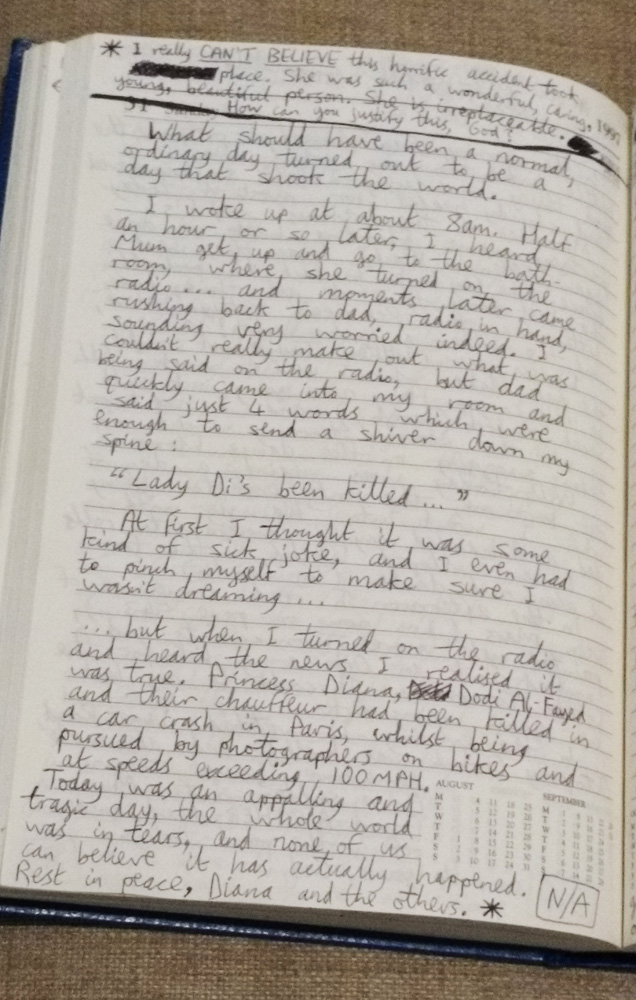 * I really CAN'T BELIEVE this horrific accident took
place. She was such a wonderful, caring,
young, beautiful person. She is irreplaceable.
31 Sunday How can you justify this, God? 1997
What should have been a normal,
ordinary day turned out to be a
day that shook the world.
I woke up at about 8am. Half
an hour or so later, I heard
Mum get up and go to the bath-
room, where she turned on the
radio... and moments later came
rushing back to dad, radio in hand,
sounding very worried indeed. I
couldn't really make out what was
being said on the radio, but dad
quickly came into my room and
said just 4 words which were
enough to send a shiver down my
spine :
"Lady Di's been killed..."
At first I thought it was some
kind of sick joke, and I even had
to pinch myself to make sure I
wasn't dreaming ...
... but when I turned on the radio
and heard the news I realised it
was true. Princess Diana, Dodi Al-Fayed
and their chauffeur had been killed in
a car crash in Paris, whilst being
pursued by photographers on bikes and
at speeds exceeding 100MPH.
Today was an appalling and
tragic day, the whole world
was in tears, and none of us
can believe it has actually happened.
Rest in peace, Diana and the others. *
AUGUST
M 4 11 18 25
T 5 12 19 26
W 6 13 20 27
T 7 14 21 28
F 1 8 15 22 29
S 2 9 16 23 30
S 3 10 17 24 31
SEPTEMBER
M
T
W
T
F
S
S
N/A